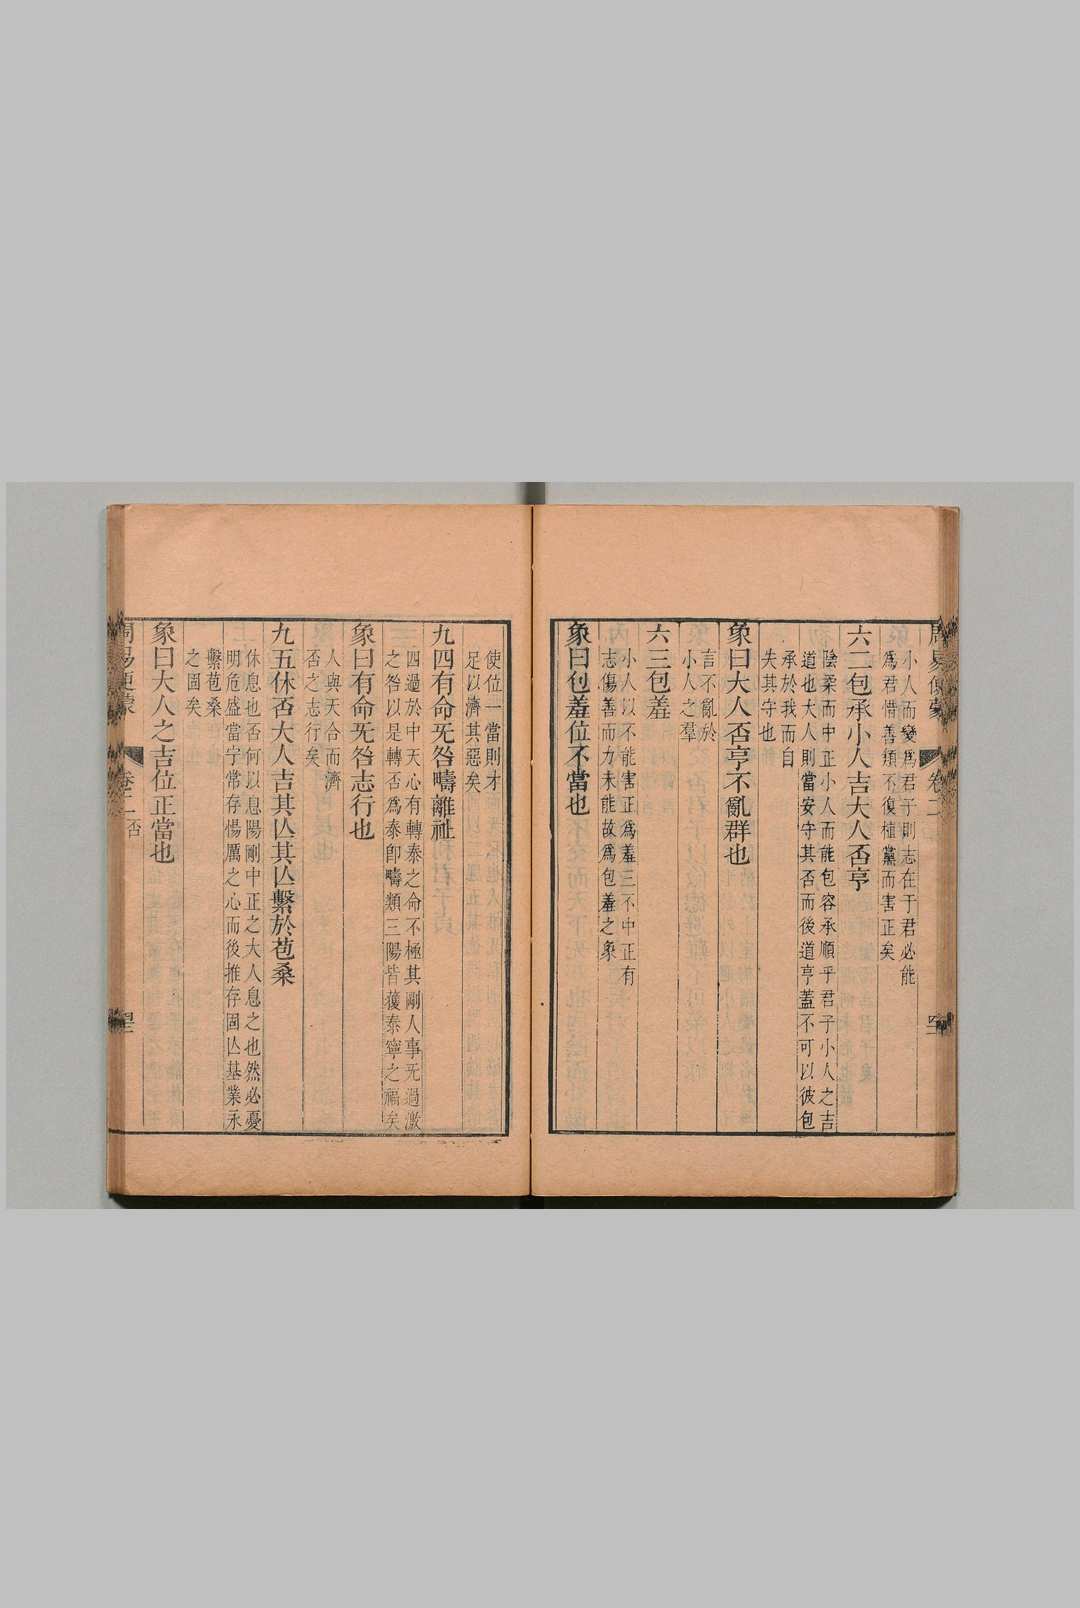 小人而變爲君子則志在于君必能
爲君惜善類不復植黨而害正矣
六二包承小人吉大人否亨
陰柔而中正小人而能包容承順乎君子小人之吉
道也大人則當安守其否而後道亨蓋不可以彼包
承於我而自
失其守也
象曰大人否亨不亂群也
言不亂於
小人之羣
六三包羞
小人以不能害正爲羞三不中正有
志傷善而力未能故爲包羞之象
象曰包羞位不當也
使位一當則才
足以濟其惡矣
九四有命无咎疇離祉
四過於中天心有轉泰之命不極其剛人事无過激
之咎以是轉否爲泰卽疇類三陽皆獲泰寧之福矣
象曰有命无咎志行也
人與天合而濟
否之志行矣
九五休否大人吉其亾其亾繫於苞桑
休息也否何以息陽剛中正之大人息之也然必憂
明危盛當字常存惕厲之心而後推存固亾基業永
繫苞桑
之固矣
象曰大人之吉位正當也
卷二 否